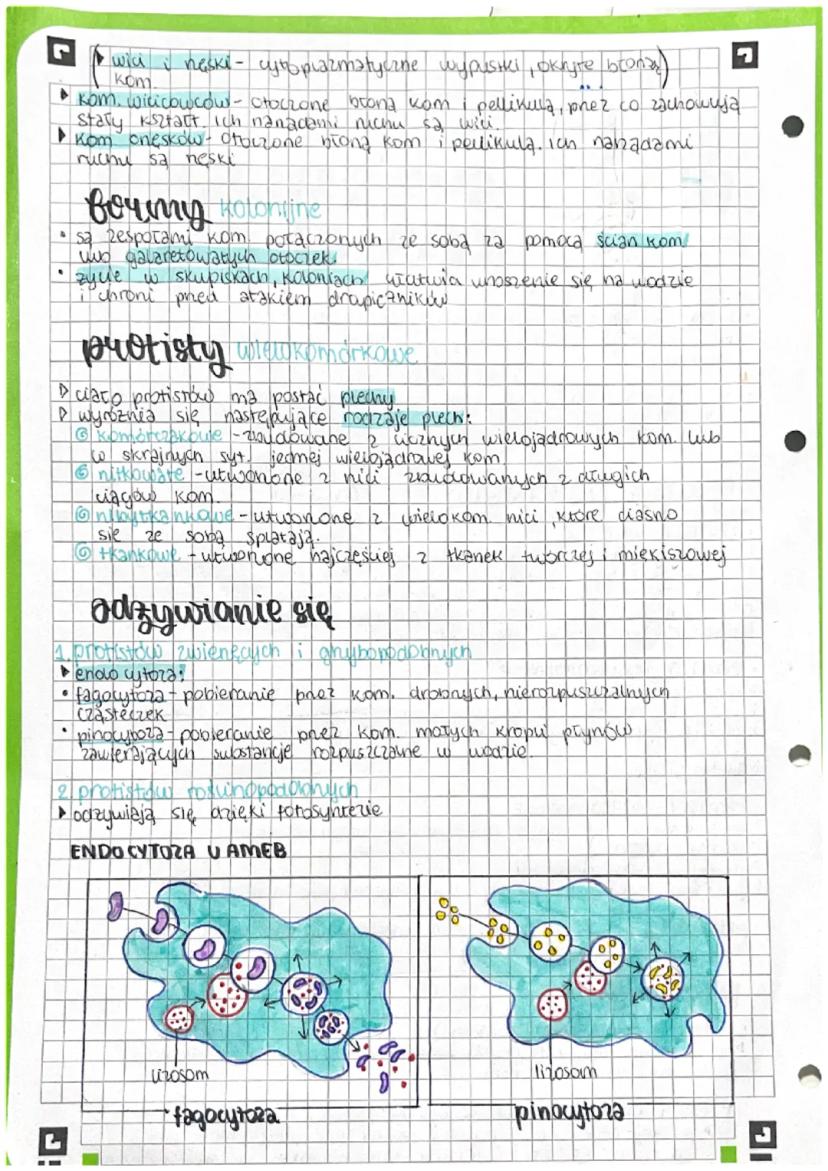 wici i rzęski - cytoplazmatyczne wypustki, okryte błoną
kom.
kom. wiciowców - otoczone błoną kom i pellikulą, przez co zachowują
stały kształt. Ich narządami ruchu są wici.
kom orzęsków - otoczone błoną kom i pellikulą. Ich narządami
ruchu są rzęski
formy kolonijne
• są zespołami kom. połączonych ze sobą za pomocą ścian kom
lub galaretowatych otoczek
• życie w skupiskach, koloniach ułatwia unoszenie się na wodzie
i chroni przed atakiem drapieżników
protisty wielokomórkowe
ciało protistów ma postać plechy
wyróżnia się następujące rodzaje plech:
komórczakowe - zbudowane z licznych wielojądrowych kom. lub
w skrajnych syt. jednej wielojądrowej kom
nitkowate - utworzone z nici zbudowanych z długich
ciągów kom.
nibytkankowe - utworzone z wielokom. nici, które ciasno
się ze sobą splatają.
tkankowe - utworzone najczęściej z tkanek twórczej i miękiszowej
odżywianie się
1. protistów zwierzęcych i grzybopodobnych
endocytoza:
• fagocytoza - pobieranie przez kom. drobnych, nierozpuszczalnych
cząsteczek
• pinocytoza - pobieranie przez kom. małych kropli płynów
zawierających substancje rozpuszczalne w wodzie.
2. protistów roślinopodobnych
odżywiają się dzięki fotosyntezie
ENDOCYTOZA U AMEB
lizosom
lizosom
fagocytoza
pinocytoza